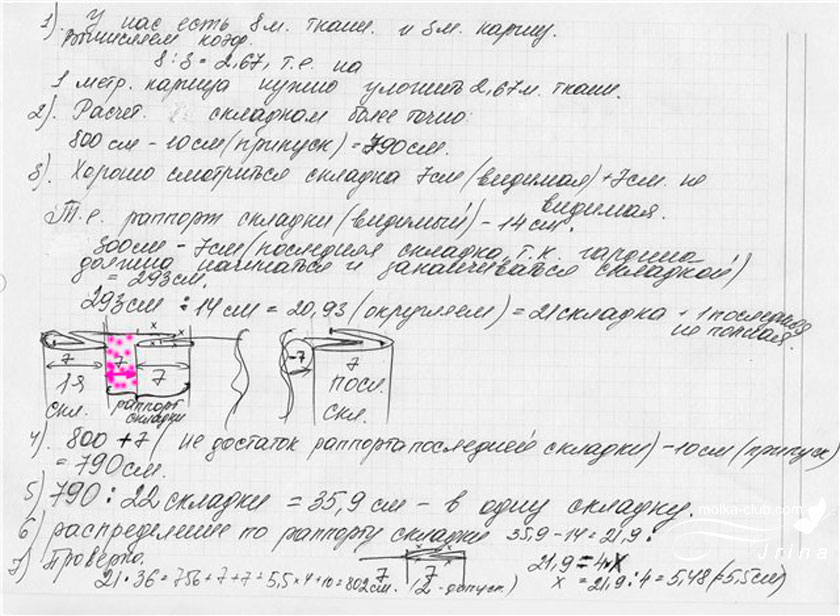 1) У нас есть 8 м. ткани. и 3 м. карниз.
Вычисляем коэф.
8 : 3 = 2,67, т.е. на
1 метр. карниза нужно уложить 2,67 м. ткани.
2). Расчет. складкам более точно:
800 см – 10 см (припуск) = 790 см.
3). Хорошо смотриться складка 7 см (видимая) + 7 см. не
видимая.
Т.е. раппорт складки (видимый) – 14 см.
300 см – 7 см (последняя складка, т.к. гардина
должна начинаться и заканчиваться складкой)
= 293 см.
293 см : 14 см = 20,93 (округляем) = 21 складка + 1 последняя
не полная.
x x
7 7 7 -7 7
1я посл.
скл. раппорт складки скл.
4). 800 + 7 (не достаток раппорта последней складки) – 10 см (припуск)
= 790 см.
5) 790 : 22 складки = 35,9 см – в одну складку.
6) распределение по раппорту складки 35,9 – 14 = 21,9 :
7) Проверка. 7 7 21,9 = 4·x
21 · 36 = 756 + 7 + 7 + 5,5 × 4 + 10 = 802 см. (2 - допуск.) x = 21,9 : 4 = 5,48 (≈5,5 см)
molka-club.com
Jrina